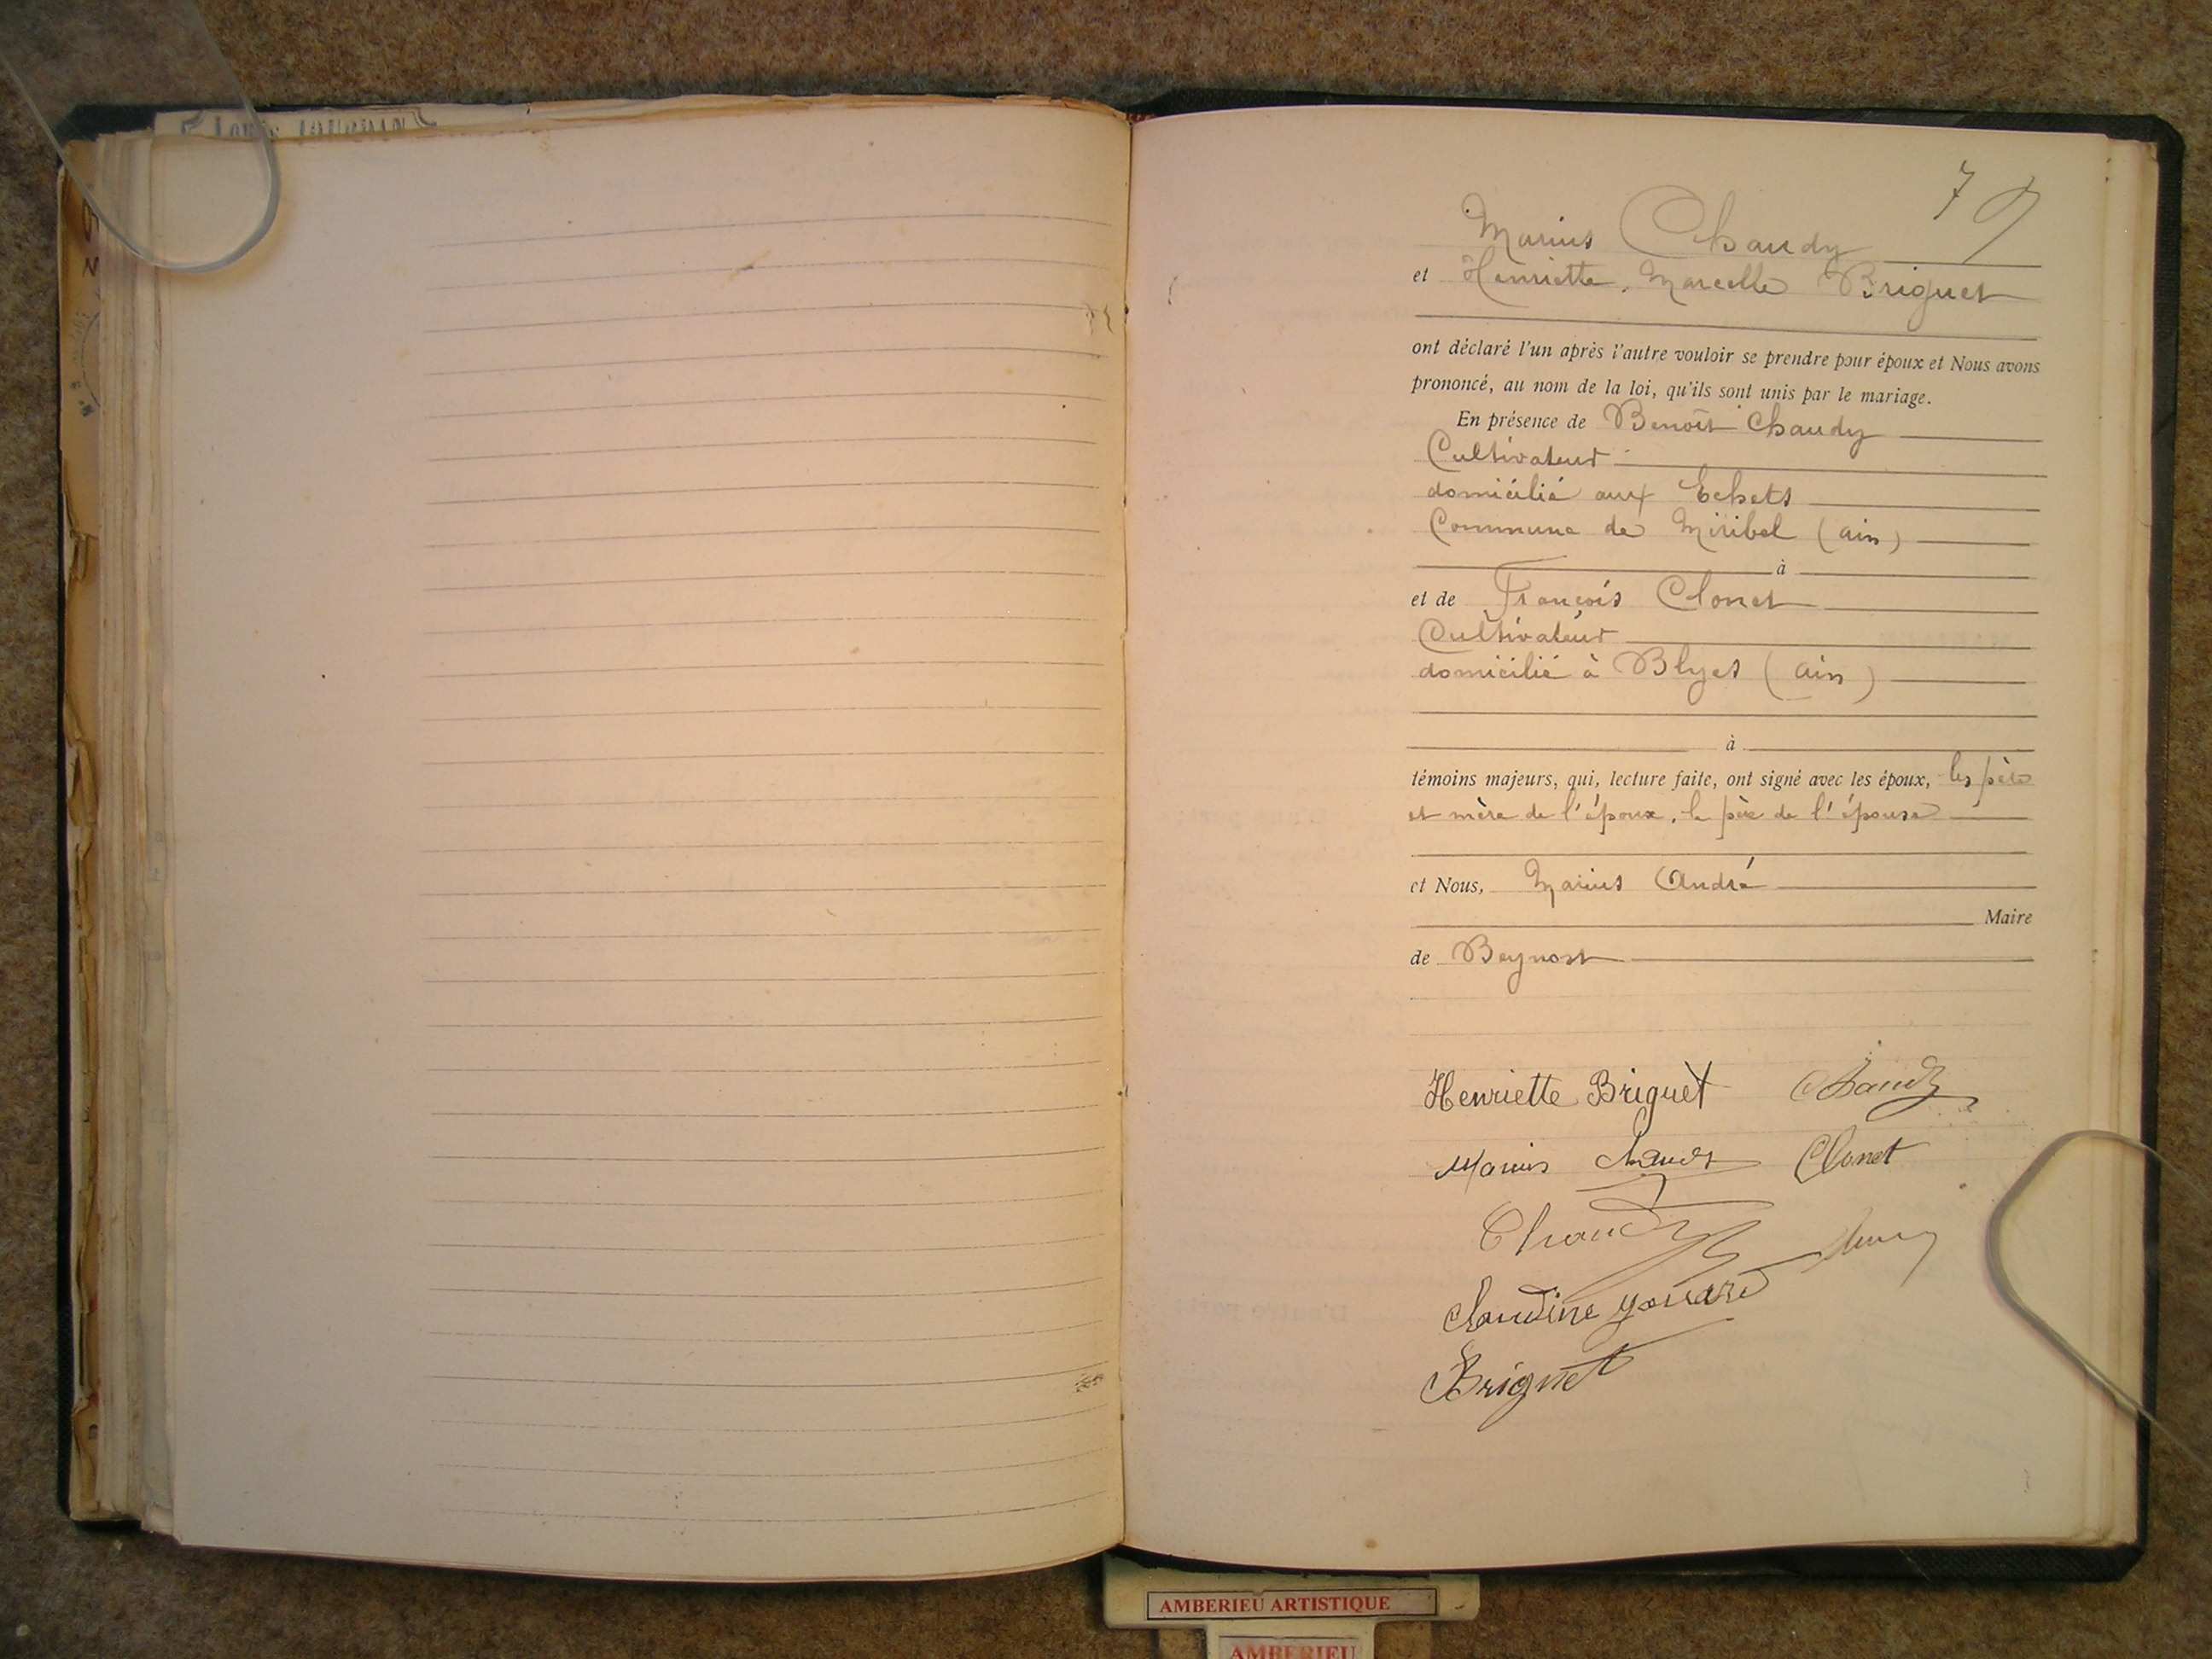 7
Marius Chaudy
et Henriette, Marcelle Briguet
ont déclaré l'un après l'autre vouloir se prendre pour époux et Nous avons
prononcé, au nom de la loi, qu'ils sont unis par le mariage.
En présence de Benoît Chaudy
Cultivateur
domicilié aux Echets
Commune de Miribel (ain)
à
et de François Clonet
Cultivateur
domicilié à Blyes (ain)
à
témoins majeurs, qui, lecture faite, ont signé avec les époux, les père
et mère de l'époux, le père de l'épouse
et Nous, Marius André
Maire
de Beynost
Henriette Briguet Chaudy
Marius Chaudy Clonet
Chaudy
Claudine
Briguet
AMBERIEU ARTISTIQUE
AMBERIEU